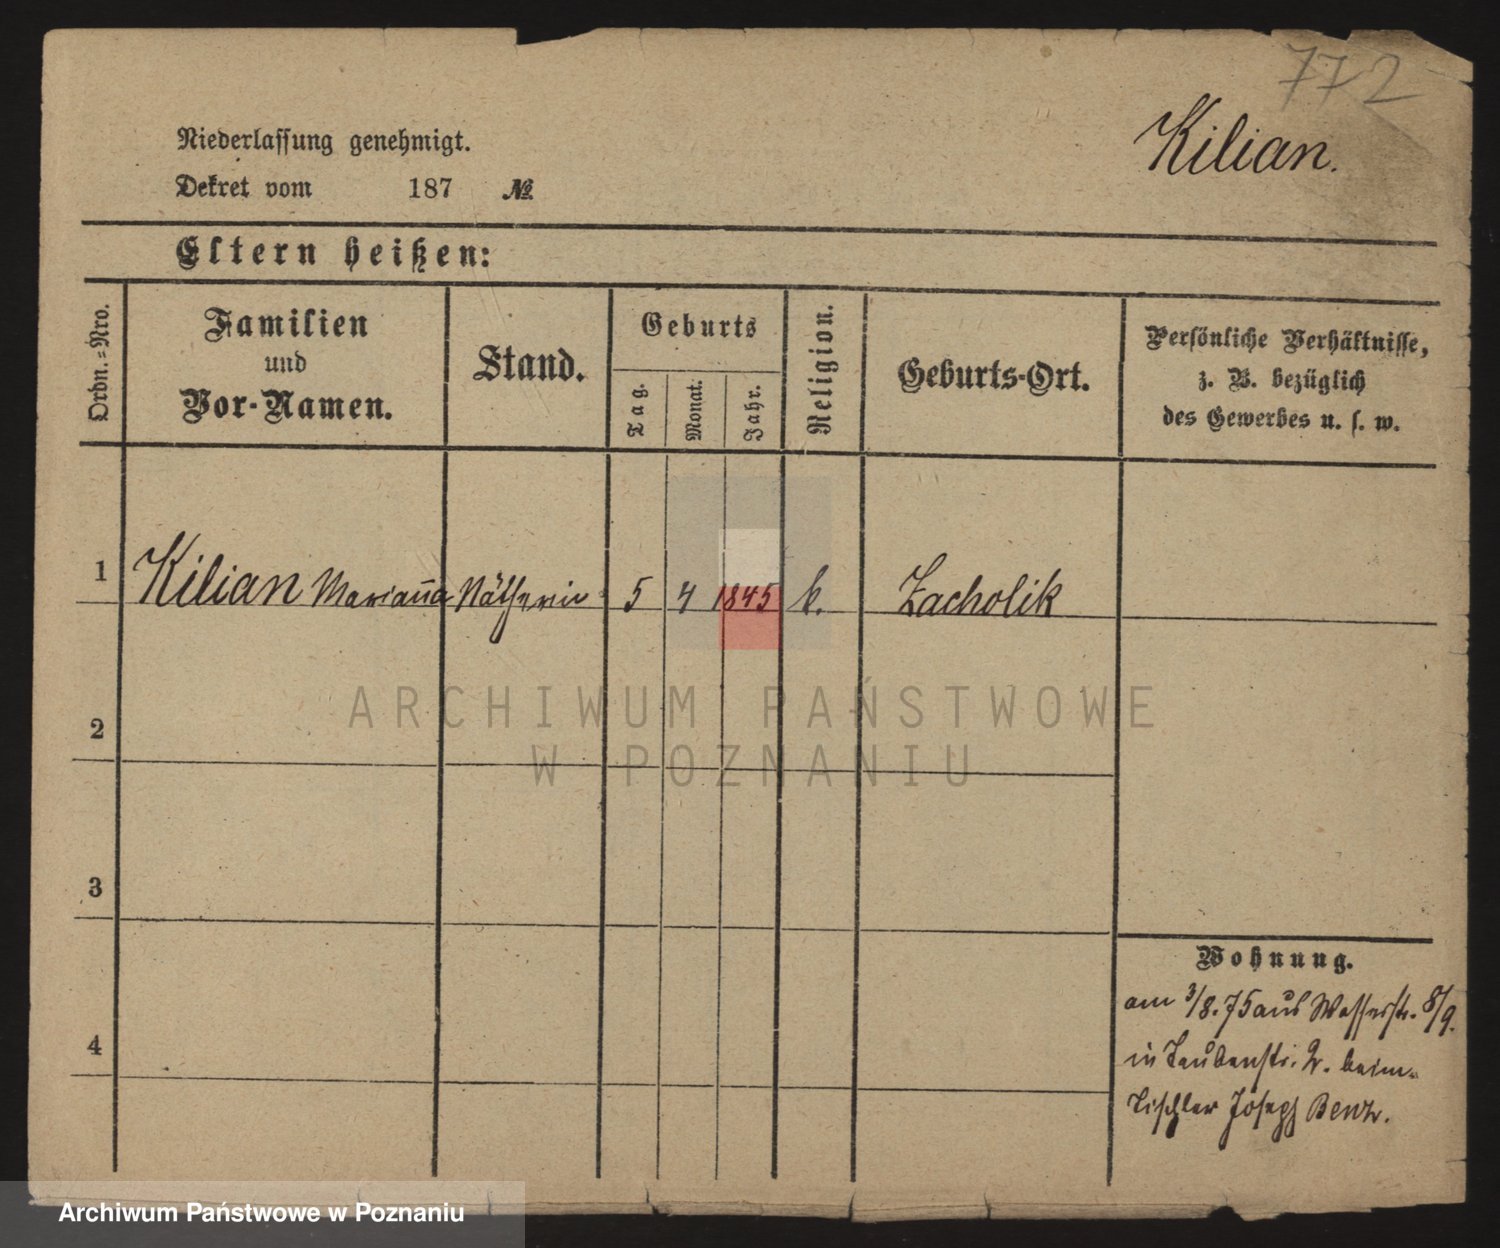 772
Kilian.
Niederlassung genehmigt.
Dekret vom 187 №
Eltern heißen:
Ordn.-Nro.
Familien
und
Vor-Namen.
Stand.
Geburts
Tag.
Monat.
Jahr.
Religion.
Geburts-Ort.
Persönliche Verhältnisse,
z. B. bezüglich
des Gewerbes u. s. w.
1 Kilian Marian̄a Nätherin 5 4 1845 k. Zacholik
2
3
4
Wohnung.
am 3/8. 75 aus Wasserstr. 8/9.
in Taubenstr. 2. beim
Tischler Joseph
ARCHIWUM PAŃSTWOWE
W POZNANIU
Archiwum Państwowe w Poznaniu